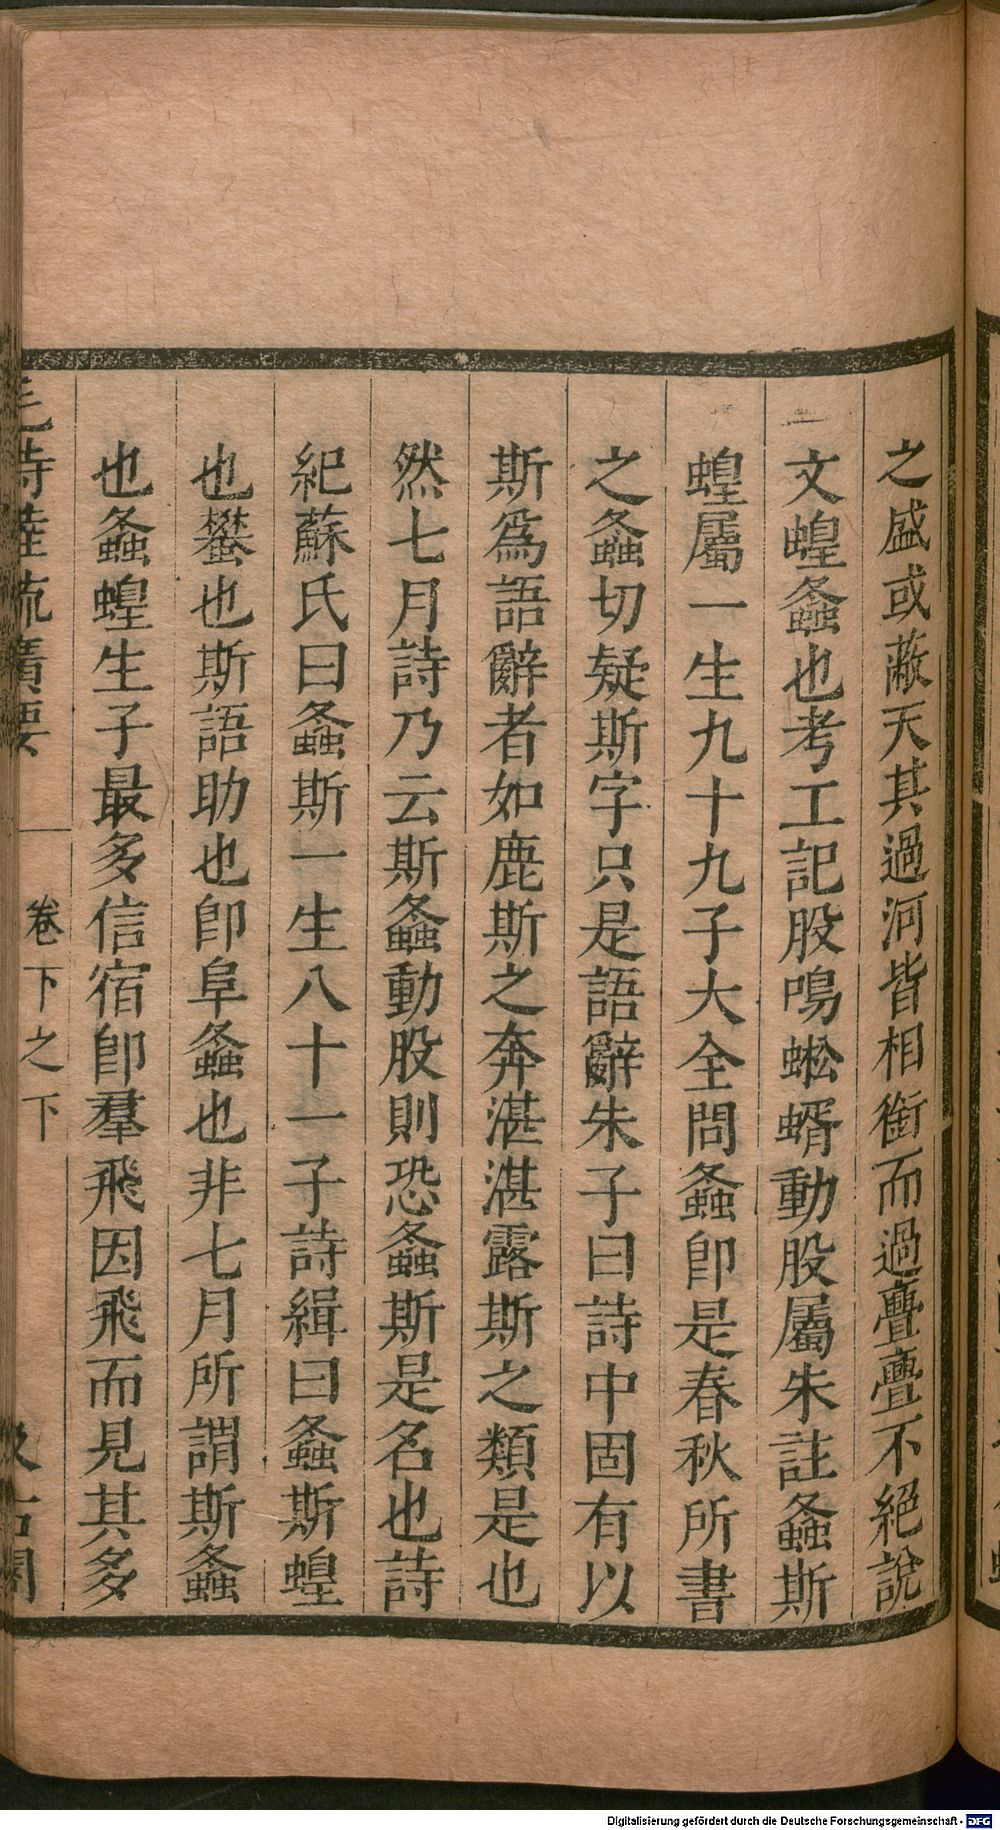 之盛或蔽天其過河皆相銜而過疊疊不絕說
文蝗螽也考工記股鳴蜙蝑動股屬朱註螽斯
蝗屬一生九十九子大全問螽卽是春秋所書
之螽切疑斯字只是語辭朱子曰詩中固有以
斯爲語辭者如鹿斯之奔湛湛露斯之類是也
然七月詩乃云斯螽動股則恐螽斯是名也詩
紀蘇氏曰螽斯一生八十一子詩緝曰螽斯蝗
也蠜也斯語助也卽阜螽也非七月所謂斯螽
也螽蝗生子最多信宿卽羣飛因飛而見其多
毛詩陸疏廣要 卷下之下 汲古閣
Digitalisierung gefördert durch die Deutsche Forschungsgemeinschaft - DFG